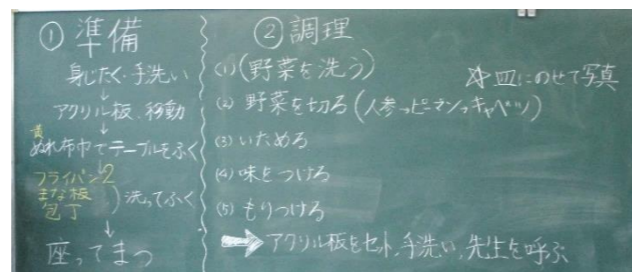 ①準備
身じたく・手洗い
↓
アクリル板、移動
↓
黄
ぬれ布巾でテーブルをふく
↓
フライパン2
まな板
包丁
)洗ってふく
↓
座ってまつ
②調理
(1)(野菜を洗う)
☆皿にのせて写真
(2) 野菜を切る(人参→ピーマン→キャベツ)
(3) いためる
(4) 味をつける
(5) もりつける
→アクリル板をセット、手洗い、先生を呼ぶ